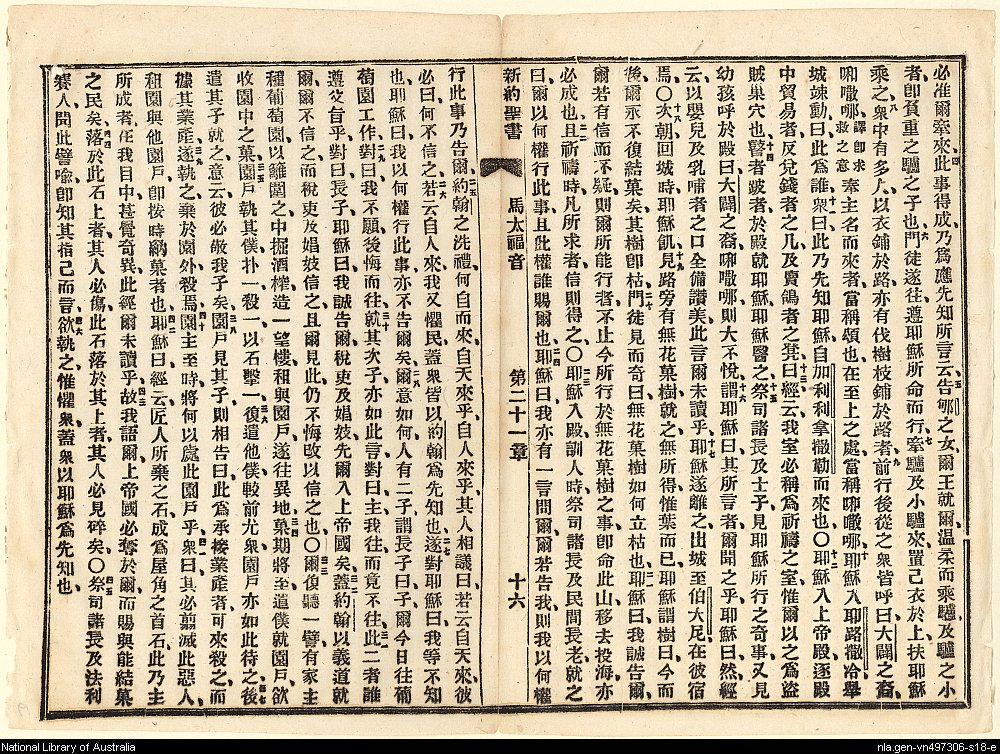 必准爾牽來此事得成乃爲應先知所言云告郇之女爾王就爾温柔而乘驢及驢之小
者卽負重之驢之子也門徒遂往遵耶穌所命而行牽驢及小驢來置己衣於上扶耶穌
乘之衆中有多人以衣鋪於路亦有伐樹枝鋪於路者前行後從之衆皆呼曰大闢之裔
譯卽求救之意奉主名而來者當稱頌也在至上之處當稱耶穌入耶路撒冷舉
城竦動曰此爲誰衆曰此乃先知耶穌自加利利拿撒勒而來也〇耶穌入上帝殿逐殿
中貿易者反兌錢者之几及賣鴿者之凳曰經云我室必稱爲祈禱之室惟爾以之爲盜
賊巢穴也瞽者跛者於殿就耶穌耶穌醫之祭司諸長及士子見耶穌所行之奇事又見
幼孩呼於殿曰大闢之裔則大不悅謂耶穌曰其所言者爾聞之乎耶穌曰然經
云以嬰兒及乳哺者之口全備讚美此言爾未讀乎耶穌遂離之出城至伯大尼在彼宿
焉〇次朝回城時耶穌飢見路旁有無花菓樹就之無所得惟葉而已耶穌謂樹曰今而
後爾永不復結菓矣其樹卽枯門徒見而奇曰無花菓樹如何立枯也耶穌曰我誠告爾
爾若有信而不疑則爾所能行者不止今所行於無花菓樹之事卽命此山移去投海亦
必成也且祈禱時凡所求者信則得之〇耶穌入殿訓人時祭司諸長及民間長老就之
曰爾以何權行此事且此權誰賜爾也耶穌曰我亦有一言問爾爾若告我則我以何權
新約聖書 馬太福音 第二十一章 十六
行此事乃告爾約翰之洗禮何自而來自天來乎自人來乎其人相議曰若云自天來彼
必曰何不信之若云自人來我又懼民蓋衆皆以約翰爲先知也遂對耶穌曰我等不知
也耶穌曰我以何權行此事亦不告爾矣爾意如何人有二子謂長子曰子爾今日往葡
萄園工作對曰我不願後悔而往就其次子亦如此言對曰主我往而竟不往此二者誰
遵父旨乎對曰長子耶穌曰我誠告爾稅吏及娼妓先爾入上帝國矣蓋約翰以義道就
爾爾不信之而稅吏及娼妓信之且爾見此仍不悔改以信之也〇爾復聽一譬有家主
種葡萄園以籬圍之中掘酒榨造一望樓租與園戶遂往異地菓期將至遣僕就園戶欲
收園中之菓園戶執其僕扑一殺一以石擊一後遣他僕較前尤衆園戶亦如此待之後
遣其子就之意云彼必敬我子矣園戶見其子則相告曰此爲承接業產者可來殺之而
據其業產遂執之棄於園外殺焉園主至時將何以處此園戶乎衆曰其必翦滅此惡人
租園與他園戶卽按時納菓者也耶穌曰經云匠人所棄之石成爲屋角之首石此乃主
所成者在我目中甚覺奇異此經爾未讀乎故我語爾上帝國必奪於爾而賜與能結菓
之民矣落於此石上者其人必傷此石落於其上者其人必見碎矣〇祭司諸長及法利
賽人聞此譬喻卽知其指己而言欲執之惟懼衆蓋衆以耶穌爲先知也
National Library of Australia
nla.gen-vn497306-s18-e